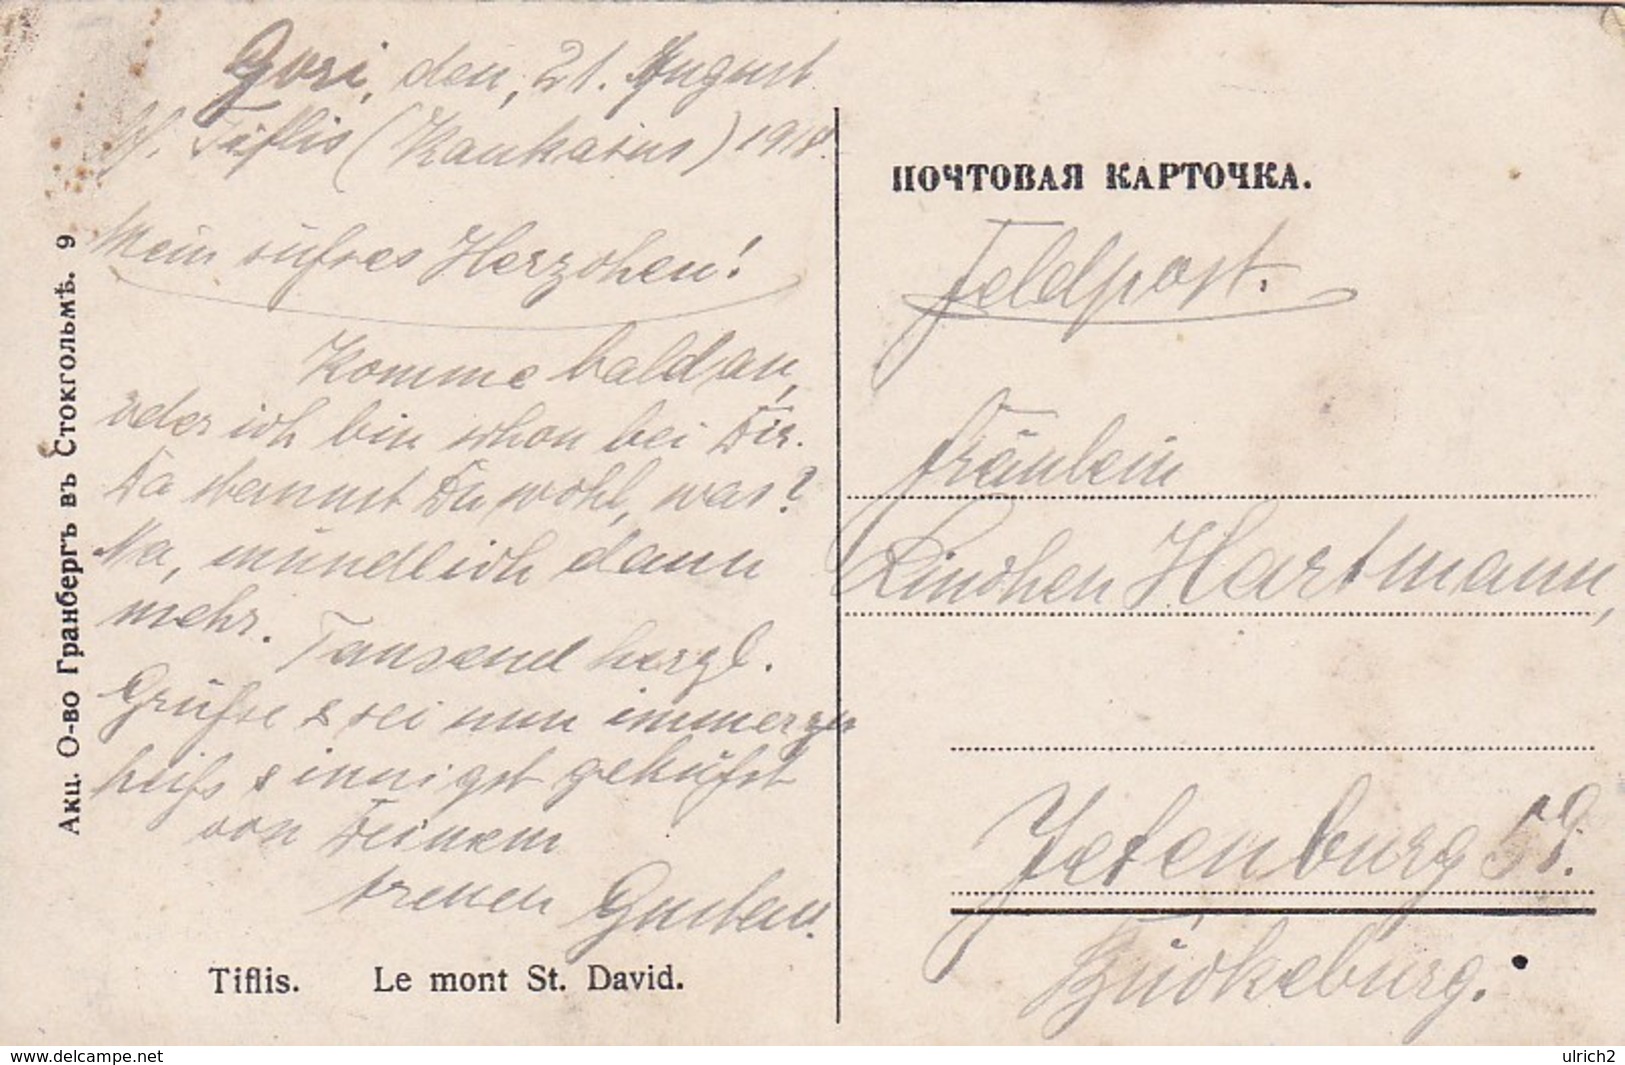 Gori, den, 21. August
bf. Tiflis (Kaukasus) 1918.
Mein süfses Herzchen!
Komme bald an,
oder ich bin schon bei Dir.
Da staunst Du wohl, was?
Na, mündlich dann
mehr. Tausend herzl.
Grüfse & sei nun immerzu
heifs & innigst geküfst
von Deinem
treuen Gustav.
Tiflis. Le mont St. David.
Акц. О-во Гранбергъ въ Стокгольмѣ. 9
ПОЧТОВАЯ КАРТОЧКА.
Feldpost.
Fräulein
Linchen Hartmann,
Jetenburg 59.
Bückeburg.
delcampe.net
ulrich2